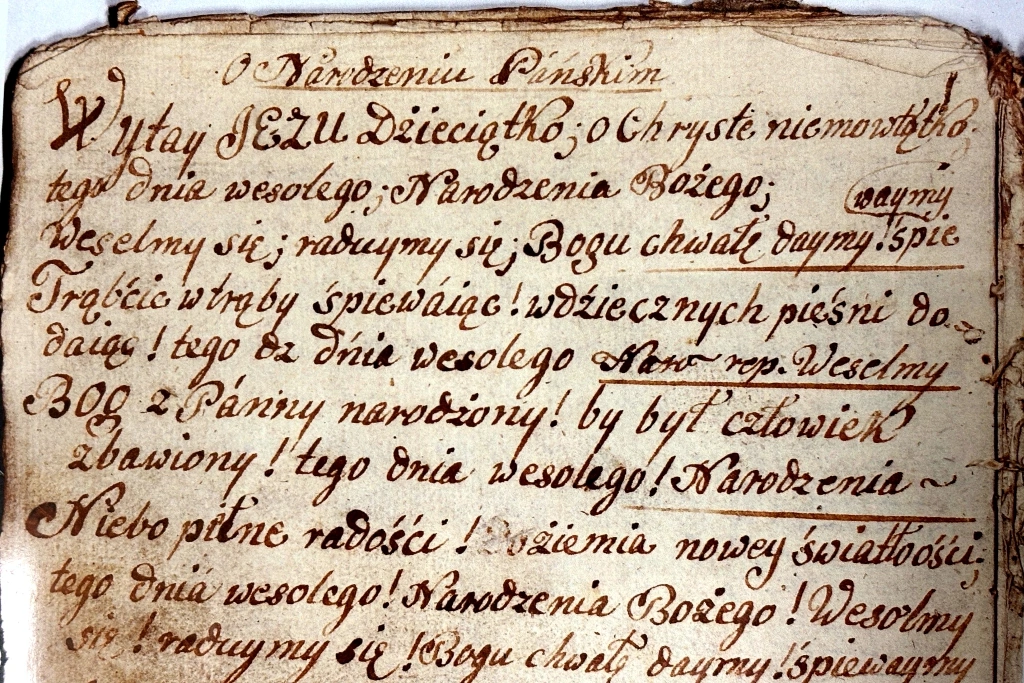 O Narodzeniu Páńskim
Wytay JEZU Dźieciątko; o Chryste niemowlątko;
tego dnia wesolego; Narodzenia Bożego;
waymy
Weselmy się; raduymy się; Bogu chwałę daymy! śpie
Trąbćie w trąby śpiewáiąc! wdźiecznych pieśni do
daiąc! tego dz dńia wesolego Naro rep. Weselmy
BOG z Pánny narodźony! by był człowiek
zbawiony! tego dnia wesolego! Narodzenia ~
Niebo pełne radośći! źiemia nowey świattośći;
tego dniá wesolego! Narodzenia Bożego! Weselmy
się! raduymy się! Bogu chwałę daymy! śpiewaymy